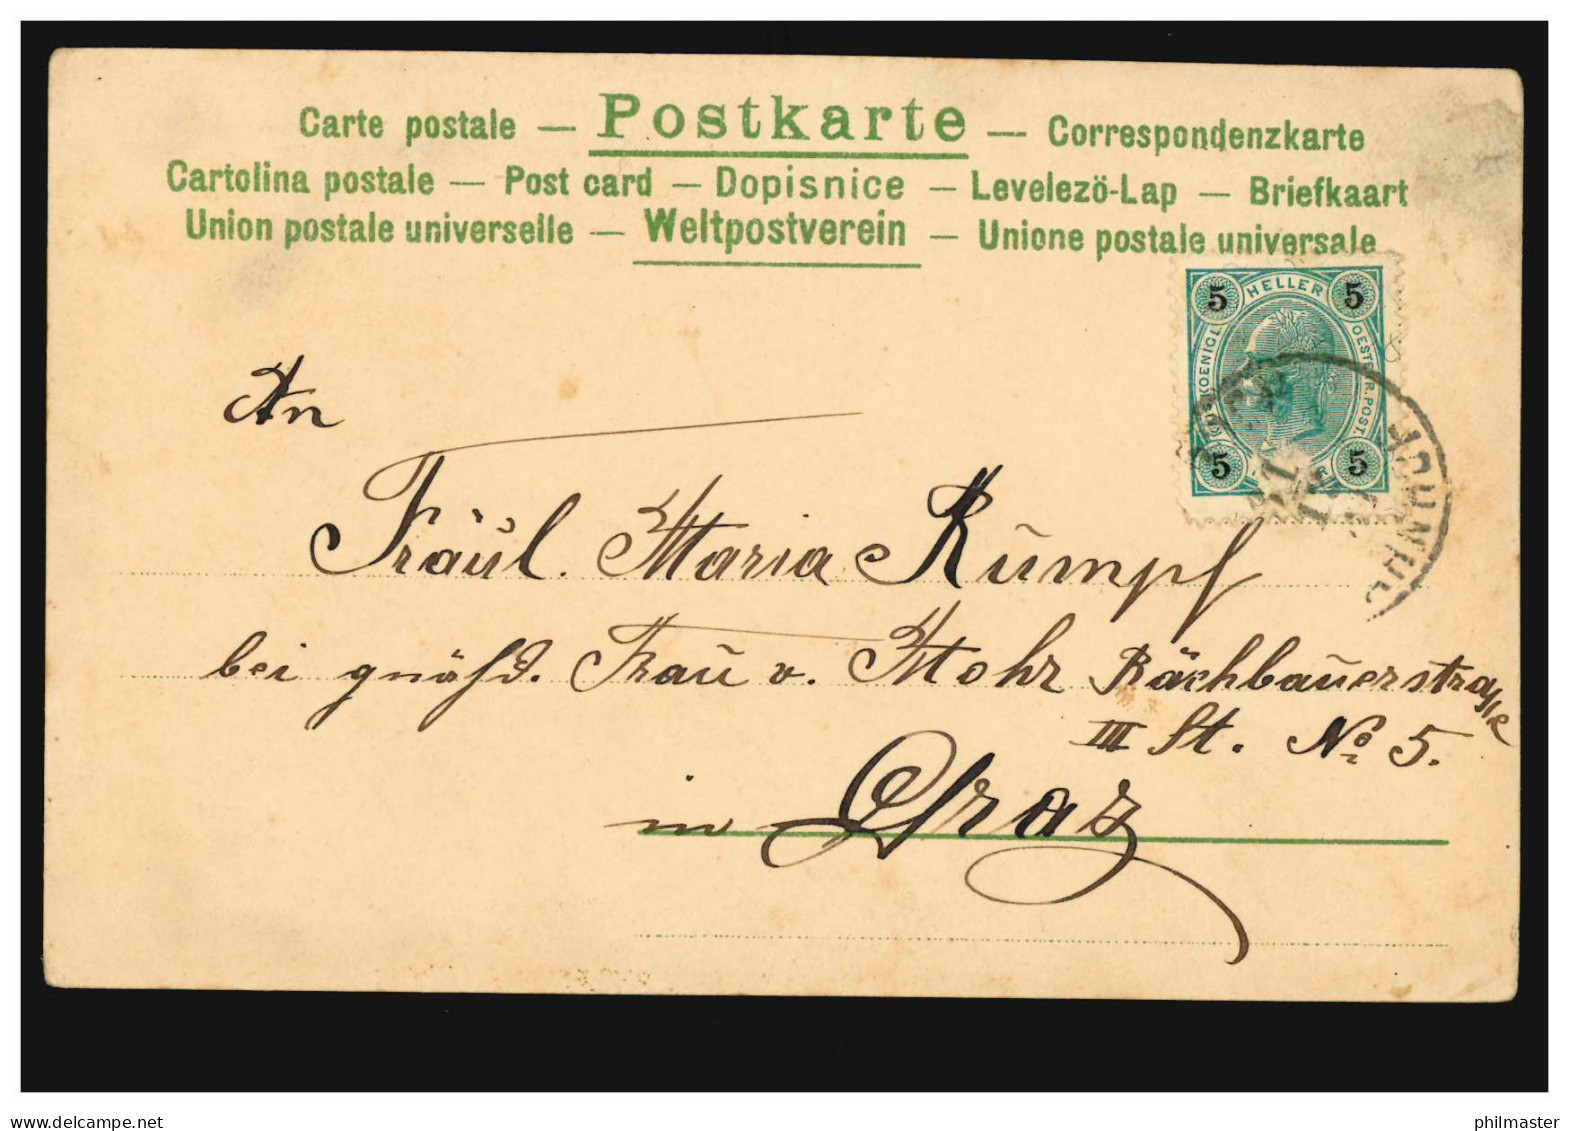 Carte postale — Postkarte — Correspondenzkarte
Cartolina postale — Post card — Dopisnice — Levelezö-Lap — Briefkaart
Union postale universelle — Weltpostverein — Unione postale universale
5 HELLER 5
KOENIGL OESTERR. POST.
5 5
An
Fräul. Maria Rumpf
bei gnäh'd. Frau v. Mohr Rächbauerstrasse
III St. No 5.
in Graz
www.delcampe.net
philmaster